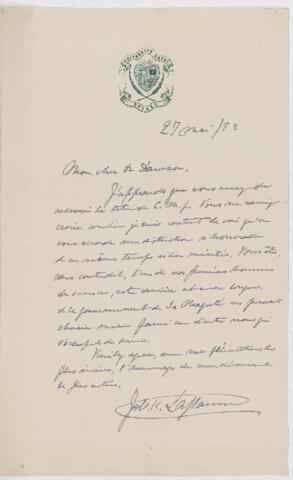 27 mai/82
Mon cher Dr Dawson,
J'apprends que vous venez de
recevoir le titre de C. M. G. Vous ne sauriez
croire combien je suis content de voir qu'on
vous accorde une distinction si honorable
et en même temps si bien méritée. Vous êtes,
sans contredit, l'un de nos premiers hommes
de science,
et le gouvernement de Sa Majesté ne pouvait
choisir mieux parmi ceux d'entre nous qui
s'occupent de science.
Veuillez agréer, avec mes félicitations les
plus sincères, l'hommage de mon dévouement
le plus entier.
J. C. K. Laflamme